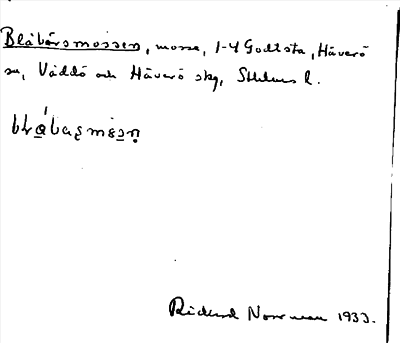 Blåbärsmossen, mosse, 1-4 Godtsta, Häverö
sn, Väddö och Häverö skg, Sthlms l.
Rickard Norrman 1933.